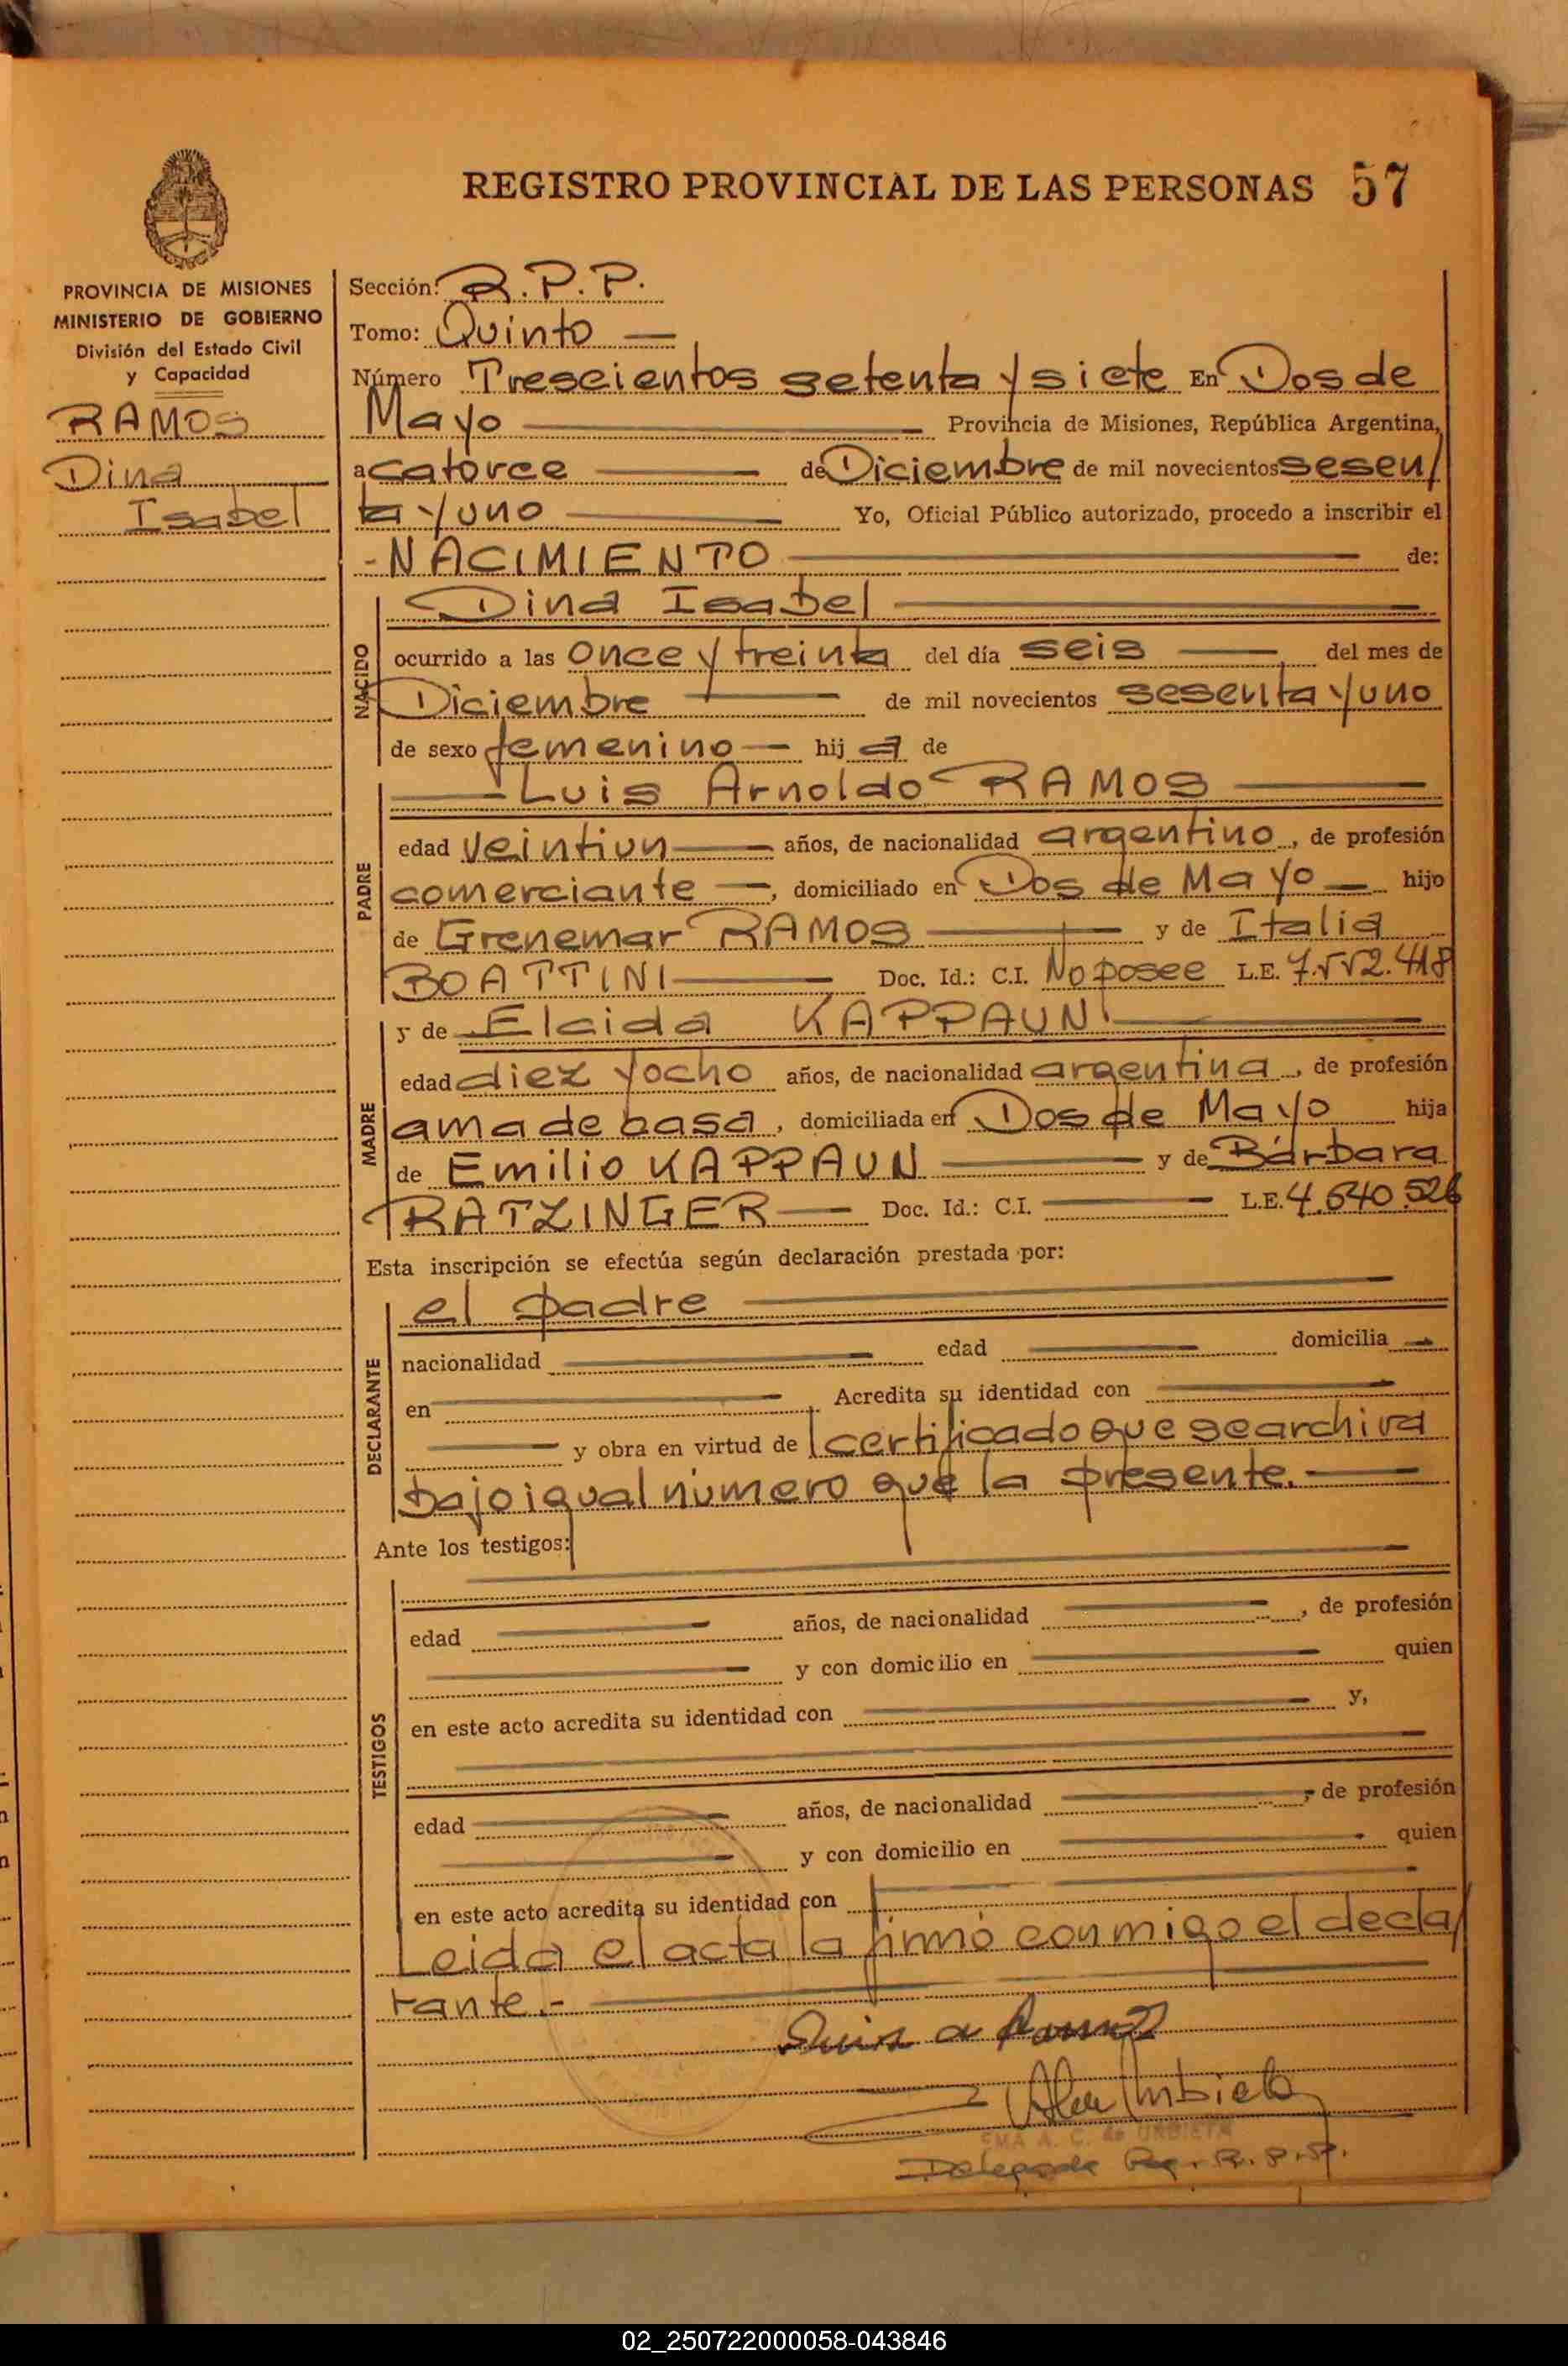 REGISTRO PROVINCIAL DE LAS PERSONAS 57
PROVINCIA DE MISIONES
MINISTERIO DE GOBIERNO
División del Estado Civil
y Capacidad
RAMOS
Dina
Isabel
Sección: R.P.P.
Tomo: Quinto
Número Trescientos setenta y siete En Dos de
Mayo Provincia de Misiones, República Argentina,
a catorce de Diciembre de mil novecientos sesen/
ta y uno Yo, Oficial Público autorizado, procedo a inscribir el
-NACIMIENTO de:
NACIDO
Dina Isabel
ocurrido a las once y treinta del día seis del mes de
Diciembre de mil novecientos sesenta y uno
de sexo femenino hij a de
PADRE
Luis Arnoldo RAMOS
edad veintiun años, de nacionalidad argentino, de profesión
comerciante, domiciliado en Dos de Mayo hijo
de Grenemar RAMOS y de Italia
BOATTINI Doc. Id.: C.I. No posee L.E. 7.552.418
MADRE
y de Elcida KAPPAUN
edad diez y ocho años, de nacionalidad argentina, de profesión
ama de casa, domiciliada en Dos de Mayo hija
de Emilio KAPPAUN y de Bárbara
RATZINGER Doc. Id.: C.I. L.E. 4.640.526
Esta inscripción se efectúa según declaración prestada por:
DECLARANTE
el padre
nacionalidad edad domicilia
en Acredita su identidad con
y obra en virtud de certificado que se archiva
bajo igual número que la presente.
Ante los testigos:
TESTIGOS
edad años, de nacionalidad , de profesión
y con domicilio en quien
en este acto acredita su identidad con y,
edad años, de nacionalidad , de profesión
y con domicilio en quien
en este acto acredita su identidad con
Leida el acta la firmó conmigo el decla/
rante.-
Luis a Ramos
Urbieta
EMA A. C. de URBIETA
Delegada R.P.P.
02_250722000058-043846